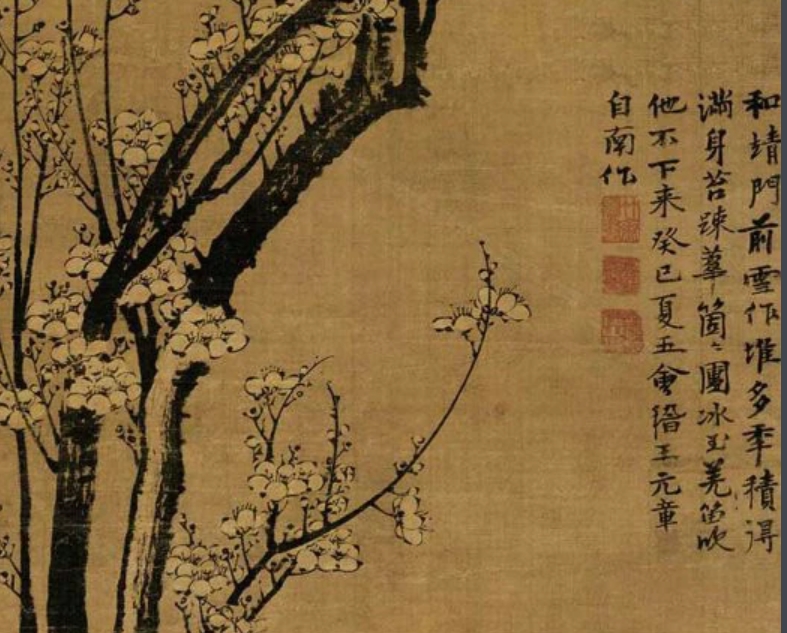 和靖門前雪作堆多年積得
満身苔踈蕚箇〻團冰玉羌笛吹
他不下来癸巳夏五會稽王元章
自南作